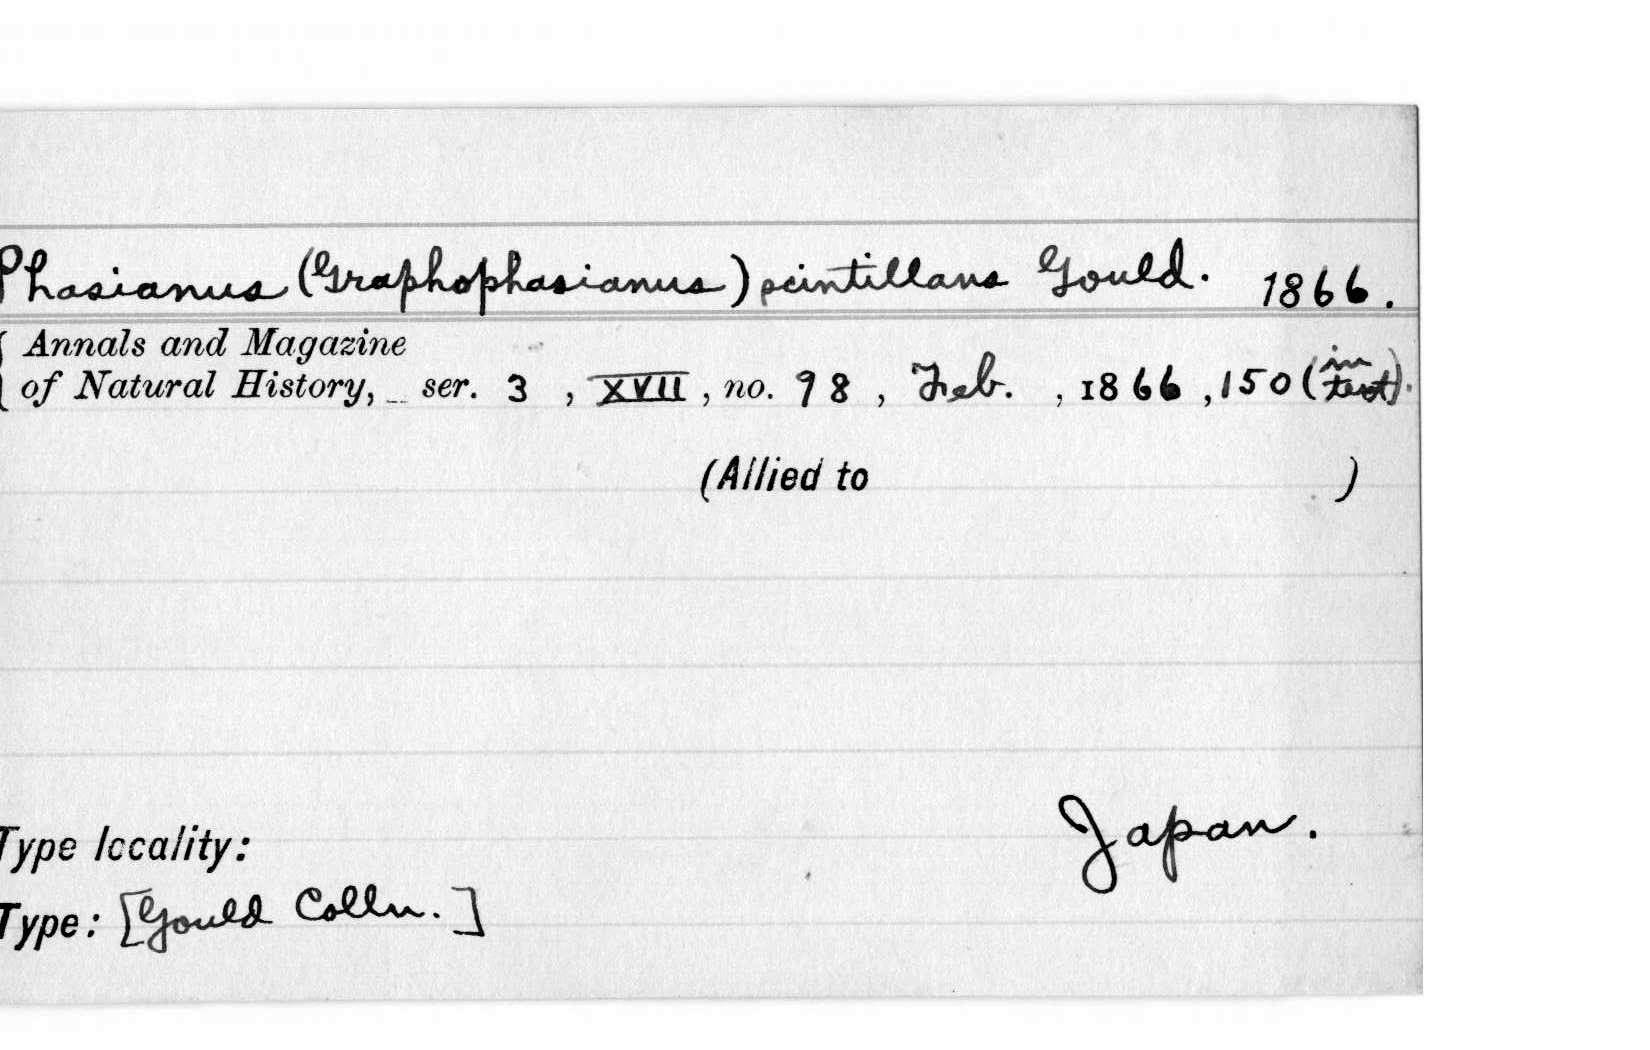 Phasianus (Graphophasianus) scintillans Gould. 1866.
{ Annals and Magazine
of Natural History, ser. 3, XVII, no. 98, Feb., 1866, 150 (in text).
(Allied to )
Type locality: Japan.
Type: [Gould Colln.]